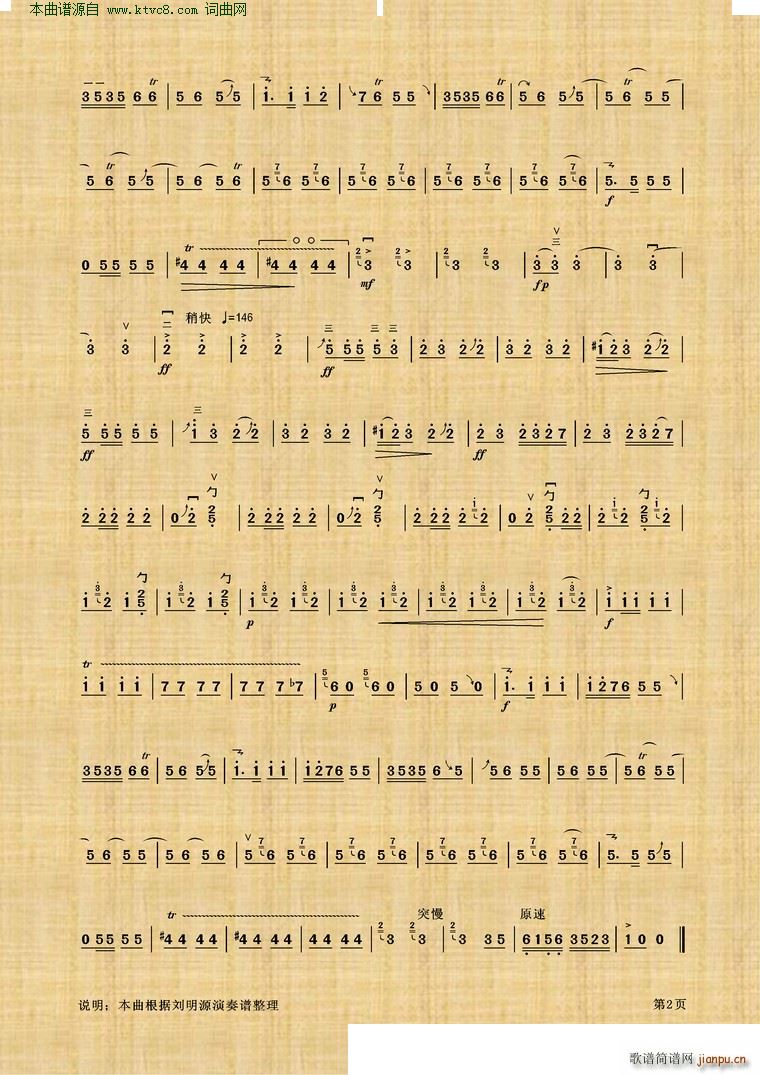 本曲谱源自 www.ktvc8.com 词曲网
3535 6 6 | 5 6 5 5 | 1. 1 1 2 | 7 6 5 5 | 3535 66 | 5 6 5 5 | 5 6 5 5 |
5 6 5 5 | 5 6 5 6 | 5 6 5 6 | 5 6 5 6 | 5 6 5 6 | 5 6 5 6 | 5. 5 5 5 |
f
0 55 5 5 | #4 4 4 4 | #4 4 4 4 | 3 3 | 3 3 | 3 3 3 | 3 3 |
mf fp
稍快 ♩=146
3 3 | 2 2 | 2 2 | 5 55 5 3 | 2 3 2 2 | 3 2 3 2 | #1 2 3 2 2 |
ff ff
5 55 5 5 | 1 3 2 2 | 3 2 3 2 | #1 2 3 2 2 | 2 3 2327 | 2 3 2327 |
ff ff
2 22 2 2 | 0 2 2 5 | 2 22 2 2 | 0 2 2 5 | 2 22 2 2 | 0 2 2 5 22 | 2 2 2 5 2 |
1 2 1 2 5 | 1 2 1 2 5 | 1 2 1 2 | 1 2 1 2 | 1 2 1 2 | 1 2 1 2 | 1 11 1 1 |
p f
tr
1 1 1 1 | 7 7 7 7 | 7 7 7 b7 | 6 0 6 0 | 5 0 5 0 | 1. 1 1 1 | 1276 5 5 |
p f
3535 66 | 5 6 5 5 | 1. 1 1 1 | 1276 5 5 | 3535 6 5 | 5 6 5 5 | 5 6 5 5 | 5 6 5 5 |
5 6 5 5 | 5 6 5 6 | 5 6 5 6 | 5 6 5 6 | 5 6 5 6 | 5 6 5 6 | 5. 5 5 5 |
tr 突慢 原速
0 55 5 5 | #4 4 4 4 | #4 4 4 4 | 4 4 4 4 | 3 3 | 3 3 5 | 6156 3523 | 1 0 0 ‖
说明：本曲根据刘明源演奏谱整理
第2页
歌谱简谱网 jianpu.cn